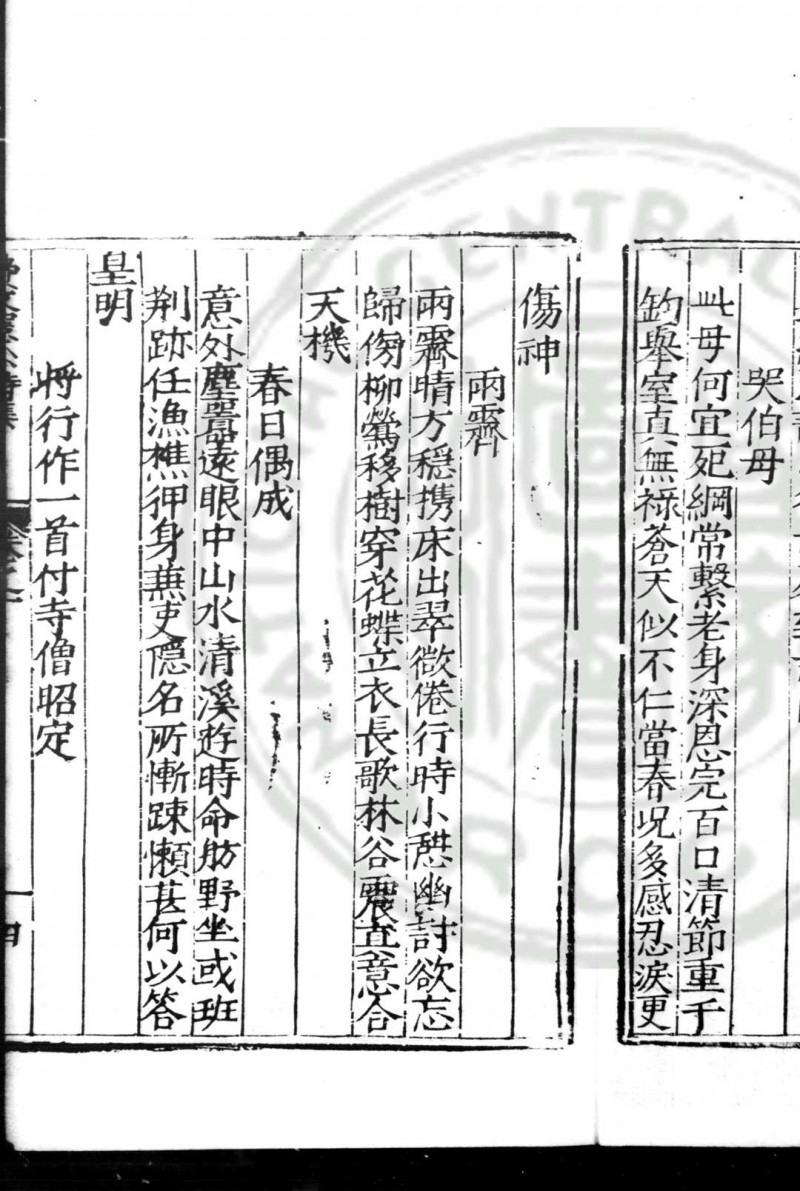 哭伯母
此母何宜死綱常繫老身深恩完百口清節重千
鈞舉室真無祿蒼天似不仁當春况多感忍淚更
傷神
雨霽
雨霽晴方穩携床出翠微倦行時小憇幽討欲忘
歸傍柳鶯移樹穿花蝶立衣長歌林谷震真意合
天機
春日偶成
意外塵囂遠眼中山水清溪遊時命舫野坐或班
荆跡任漁樵狎身兼吏隱名所慚踈懶甚何以答
皇明
將行作一首付寺僧昭定
四
CENTRAL